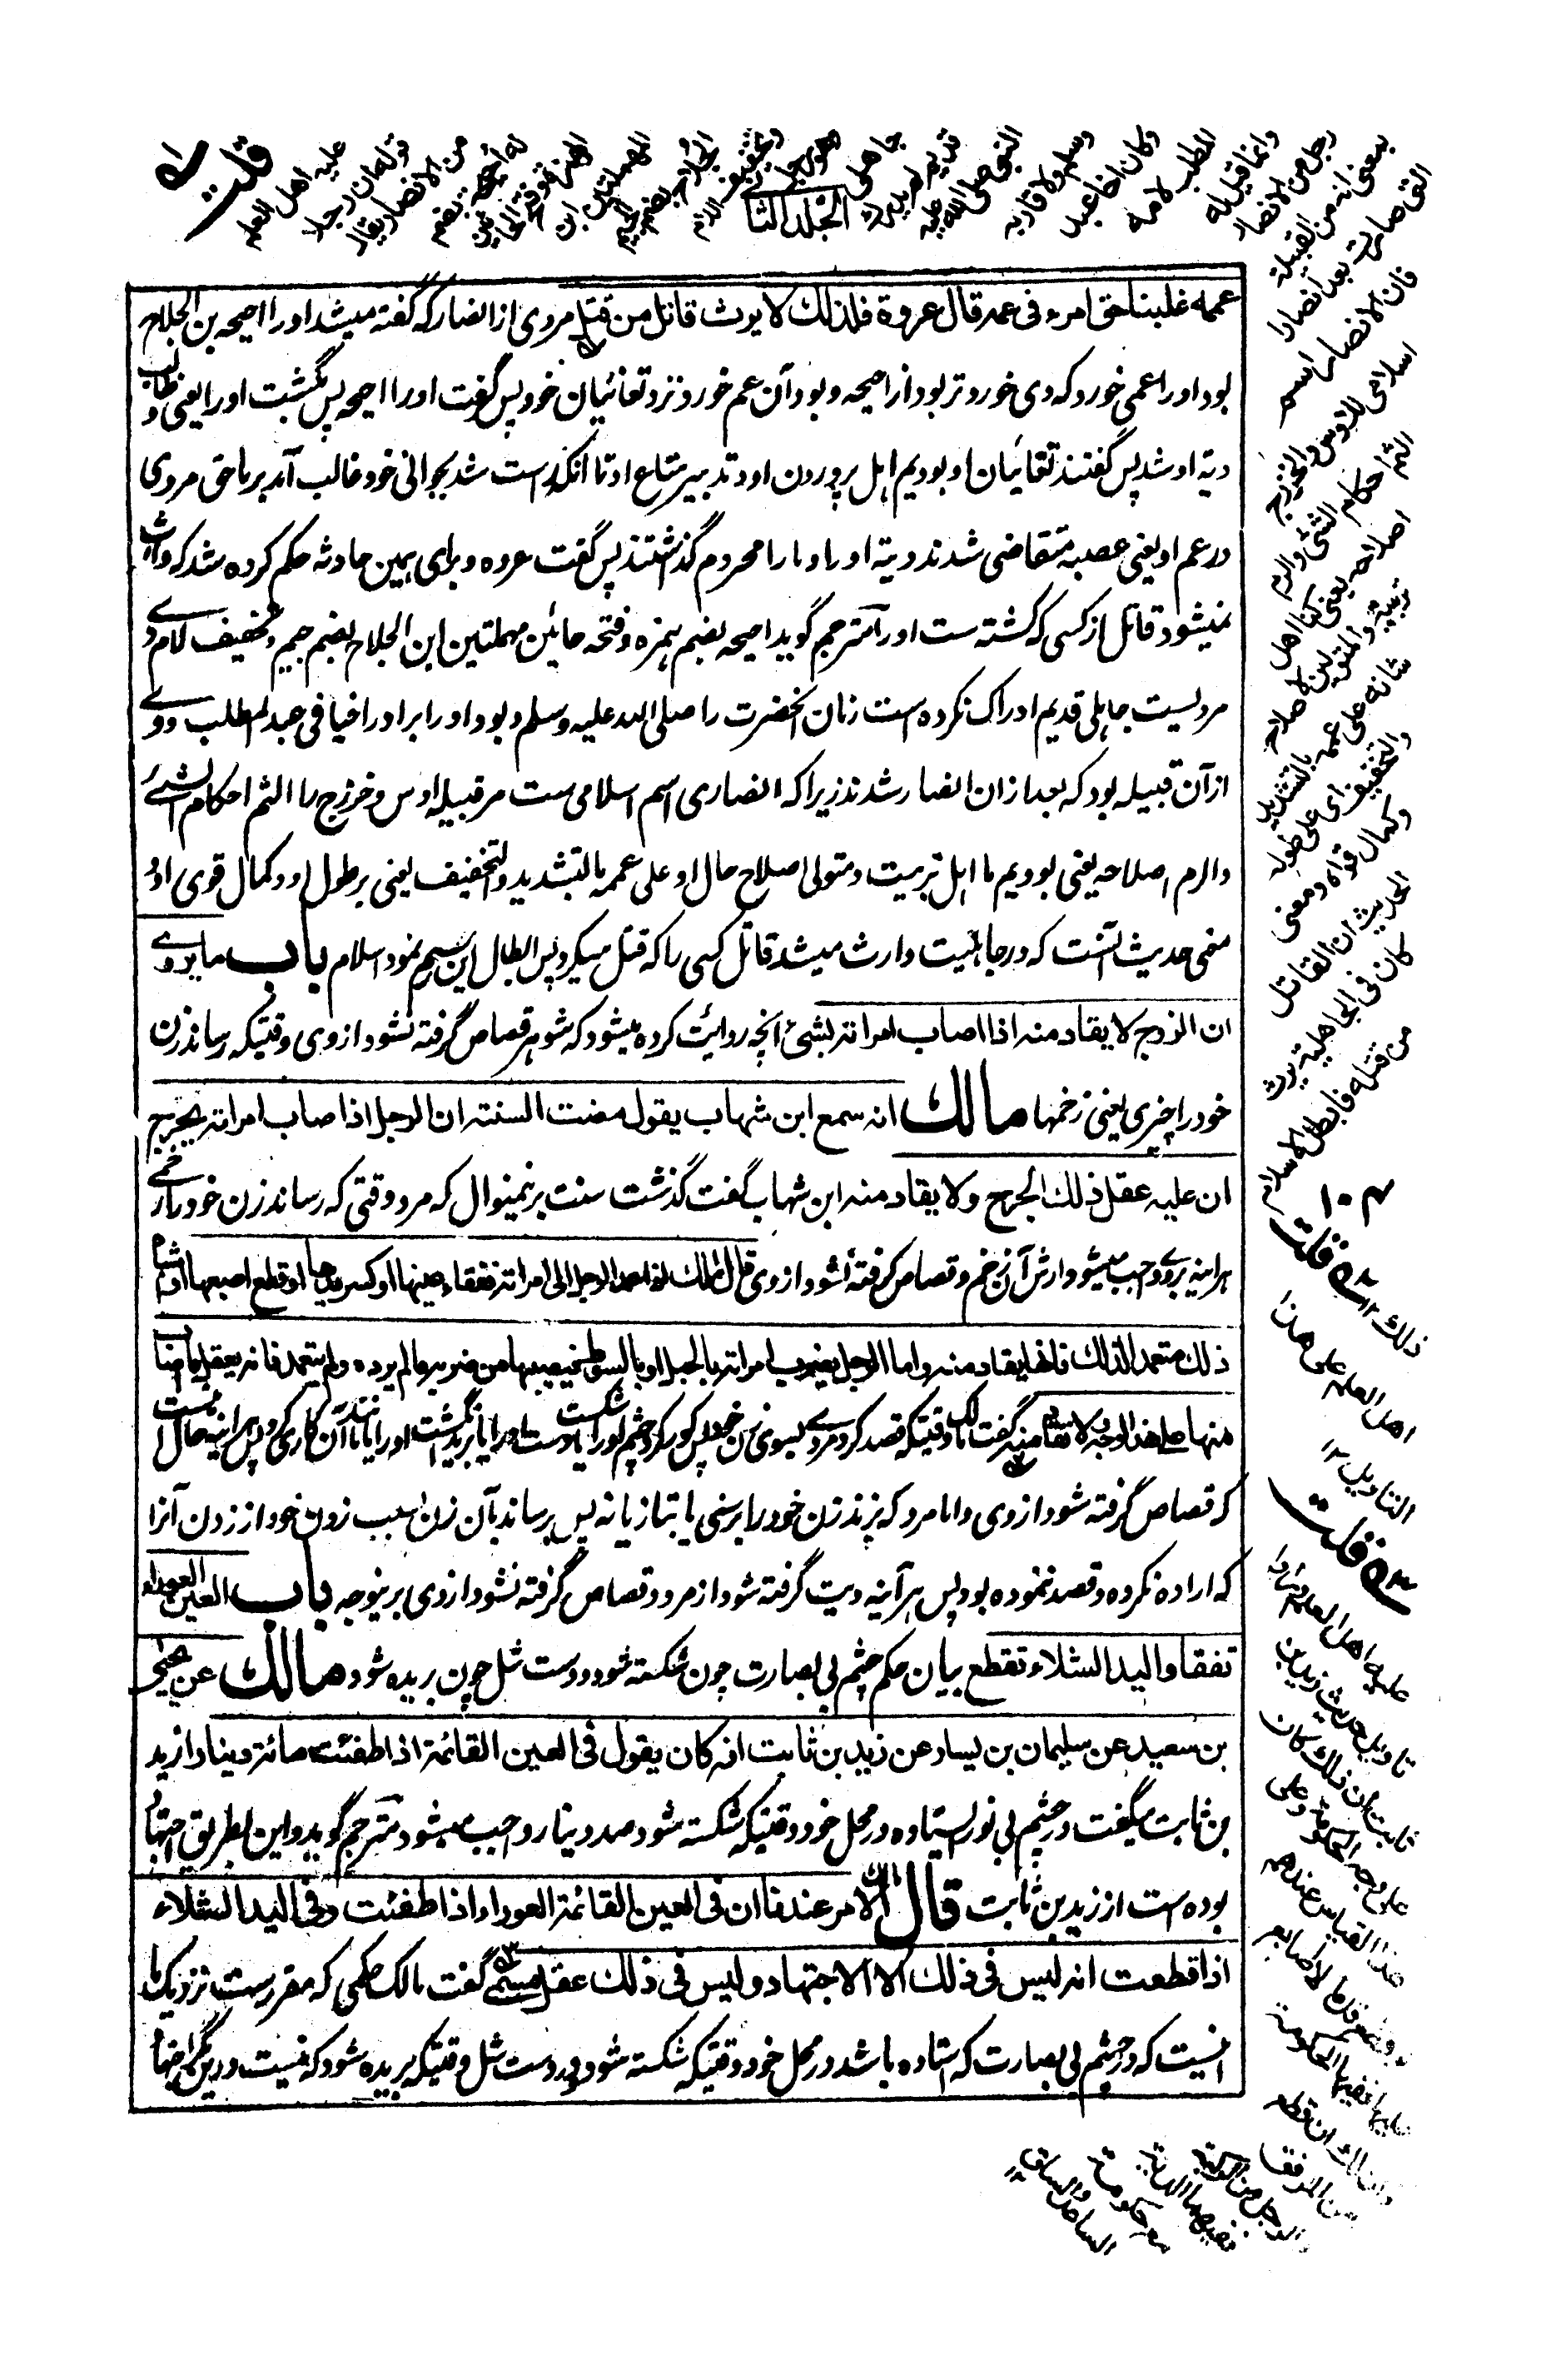 عممه غلبنا حق امرء فی عمه قال عروة فلذلك لا یرث قاتل من قتل مروی از انصار که گفته میشد او را احیحه بن الجلاح
بود او را عمی خورد که وی خوردتر بود از احیحه و بود آن عم خورد نزد تغائیان خود پس گفت او را احیحه پس بکشت او را یعنی و طالب
دیة او شد پس گفتند تغائیان او بودیم اهل پروردن او و تدبیر متاع او تا آنکه راست شد بجوانی خود غالب آمد بر ما حق مروی
در عم او یعنی عصبه متقاضی شدند دیة او را و ما را محروم گذشتند پس گفت عروه و برای همین حادثه حکم کرده شد که وارث
نمیشود قاتل از کسی که کشته ست او را مترجم گوید احیحه بضم همزه و فتحه حائین مهملتین ابن الجلاح بضم جیم و تخفیف لام وی
مردیست جاهلی قدیم ادراک نکرده است زمان آنحضرت را صلی الله علیه وسلم و بود او را برادر اخیافی عبد المطلب و وی
از آن قبیله بود که بعد از ان انصار شدند زیرا که انصاری اسم اسلامی ست مر قبیله اوس و خزرج را الثم احکام الشئ
والرم اصلاحه یعنی بودیم ما اهل تربیت و متولی اصلاح حال او علی عممه بالتشدید والتخفیف یعنی بر طول او و کمال قوی او
معنی حدیث آنست که در جاهلیت وارث میشد قاتل کسی را که قتل میکرد پس ابطال این رسم نمود اسلام باب ما یروی
ان الزوج لا یقاد منه اذا اصاب امراته بشئ آنچه روایت کرده میشود که شوهر قصاص گرفته نشود از وی وقتیکه رساند زن
خود را چیزی یعنی زخمها مالك انه سمع ابن شهاب یقول مضت السنة ان الرجل اذا اصاب امراته بجرح
ان علیه عقل ذلك الجرح ولا یقاد منه ابن شهاب گفت گذشت سنت برنمینوال که مرد وقتی که رساند زن خود را زخمی
هراینه بر وی واجب میشود ارش آن زخم و قصاص گرفته نشود از وی قال مالك اذا عمد الرجل الی امراته ففقاء عینها او کسر یدها او قطع اصبعها او اشباه
ذلك متعمدا لذلك فانها یقاد منه واما الرجل یضرب امراته بالحبل او بالسوط فیصیبها من ضربه ما لم یرده ولم یتعمد فانه یعقل ما اصاب
منها علی هذا الوجه ولا یقاد منه گفت مالك وقتیکه قصد کرد مردی بسوی زن خود پس کور کرد چشم او را یا شکست دست او را یا برید انگشت او را یا مانند آن کاری کرد پس هراینه حال آنست
که قصاص گرفته شود از وی و اما مرد که بزند زن خود را برسنی یا بتازیانه پس برساند بآن زن بسبب زدن خود از زدن آنرا
که اراده نکرده و قصد ننموده بود پس هرآینه دیت گرفته شود از مرد و قصاص گرفته نشود از وی برینوجه باب العین العوراء
تفقا والید الشلاء تقطع بیان حکم چشم بی بصارت چون شکسته شود و دست شل چون بریده شود مالك عن یحیی
بن سعید عن سلیمان بن یسار عن زید بن ثابت انه کان یقول فی العین القائمة اذا اطفئت مائة دینار زید
بن ثابت میگفت در چشم بی نور ایستاده در محل خود وقتیکه شکسته شود صد دینار واجب میشود مترجم گوید و این بطریق اجتهاد
بوده است از زید بن ثابت قال مالك الامر عندنا ان فی العین القائمة العوراء اذا اطفئت وفی الید الشلاء
اذا قطعت انه لیس فی ذلك الا الاجتهاد ولیس فی ذلك عقل مسمی گفت مالک حکمی که مقررست نزدیک ما
اینست که در چشم بی بصارت که استاده باشد در محل خود وقتیکه شکسته شود و در دست شل وقتیکه بریده شود که نیست درین مگر اجتهاد
قلت
علیه اهل العلم
قوله ان رجلا
من الانصار یقال
له احیحة بضم
الهمزة وفتح الحائین
المهملتین ابن
الجلاح بضم الجیم
وتخفیف اللام
هو رجل
الجلد الثانی
جاهلی
قدیم لم یدرك
النبی صلی الله علیه
وسلم ولا قاربه
وکان اخا عبد
المطلب لامه
وانما قیل له
رجل من الانصار
بمعنی انه من القبیلة
التی صارت بعد انصارا
فان الانصار اسم
اسلامی للاوس والخزرج
الثم احکام الشئ والرم
اصلاحه یعنی کنا اهل
تربیته والمتولین لاصلاح
شانه علی عممه بالتشدید
والتخفیف ای علی طوله
وکمال قواه ومعنی
الحدیث ان القاتل
کان فی الجاهلیة یرث
من قتله فابطله الاسلام
۱۰۴
قلت
ذلك ۱۲
اهل العلم علی هذا
التاویل ۱۲
قلت
علیه اهل العلم
تاویل حدیث زید بن
ثابت ان ذلك کان
علی وجه الحکومة وعلی
هذا القیاس عندهم